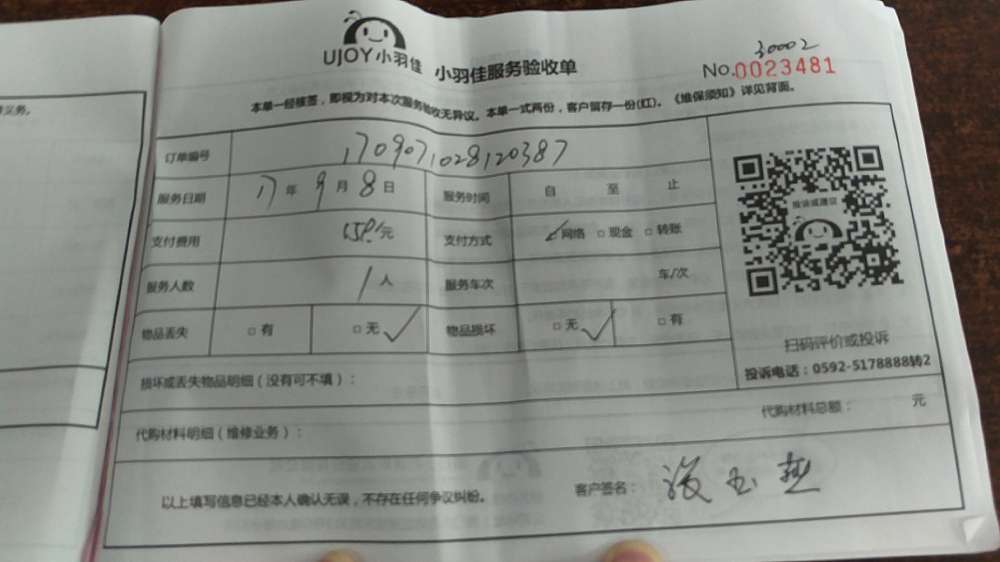 义务。
30002
UJOY小羽佳 小羽佳服务验收单 No.0023481
本单一经核签，即视为对本次服务验收无异议。本单一式两份，客户留存一份(红)。《维保须知》详见背面。
订单编号 170907102812038​7
服务日期 17年9月8日 服务时间 自 至 止
支付费用 元 支付方式 网络 □现金 □转账
服务人数 1人 服务车次 车/次
物品丢失 □有 □无✓ 物品损坏 □无✓ □有
投诉或建议
扫码评价或投诉
投诉电话：0592-5178888转2
损坏或丢失物品明细（没有可不填）：
代购材料明细（维修业务）： 代购材料总额： 元
以上填写信息已经本人确认无误，不存在任何争议纠纷。 客户签名：